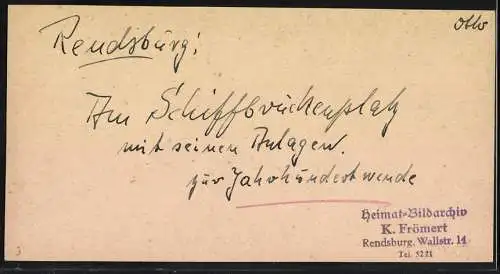 Otto
Rendsburg:
Am Schiffbrückenplatz
mit seinen Anlagen.
zur Jahrhundertwende
Heimat-Bildarchiv
K. Frömert
Rendsburg, Wallstr. 14
Tel. 5221
3